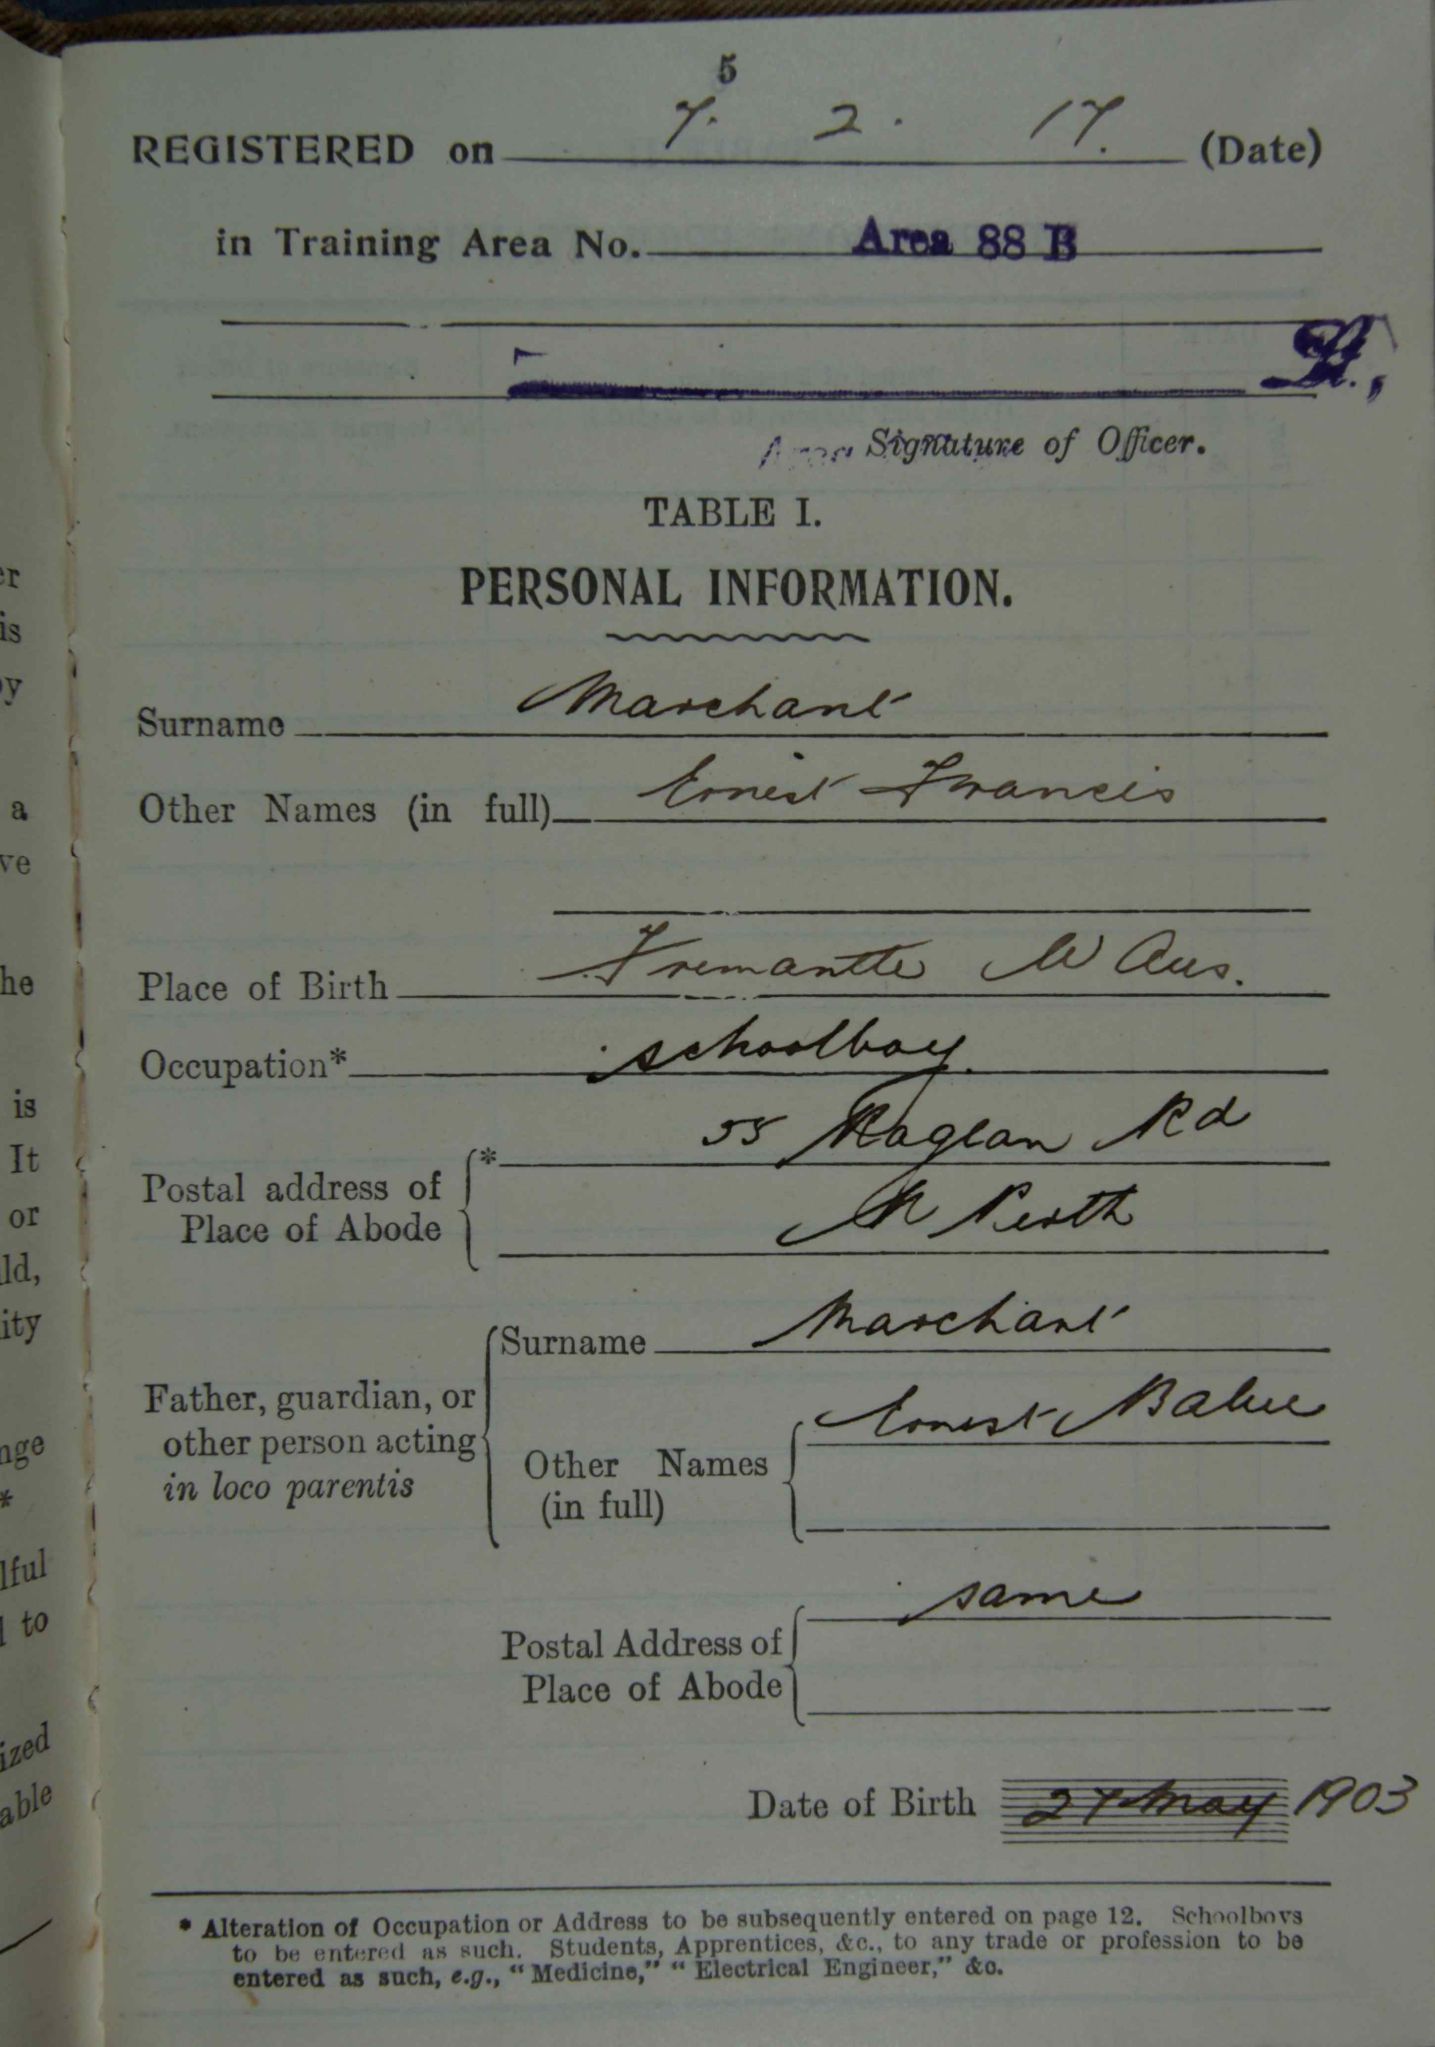 5
REGISTERED on 7. 2. 17. (Date)
in Training Area No. Area 88 B
Lt.,
Area Signature of Officer.
TABLE I.
PERSONAL INFORMATION.
Surname Marchant
Other Names (in full) Ernest Francis
Place of Birth Fremantle W Aus.
Occupation* schoolboy.
* 55 Raglan Rd
Postal address of
Place of Abode N Perth
Surname Marchant
Father, guardian, or
other person acting
in loco parentis
Ernest
Other Names
(in full)
same
Postal Address of
Place of Abode
Date of Birth 27 May 1903
* Alteration of Occupation or Address to be subsequently entered on page 12. Schoolboys
to be entered as such. Students, Apprentices, &c., to any trade or profession to be
entered as such, e.g., "Medicine," "Electrical Engineer," &c.
er
is
by
a
ve
he
is
It
or
ld,
ity
nge
*
lful
to
ized
able